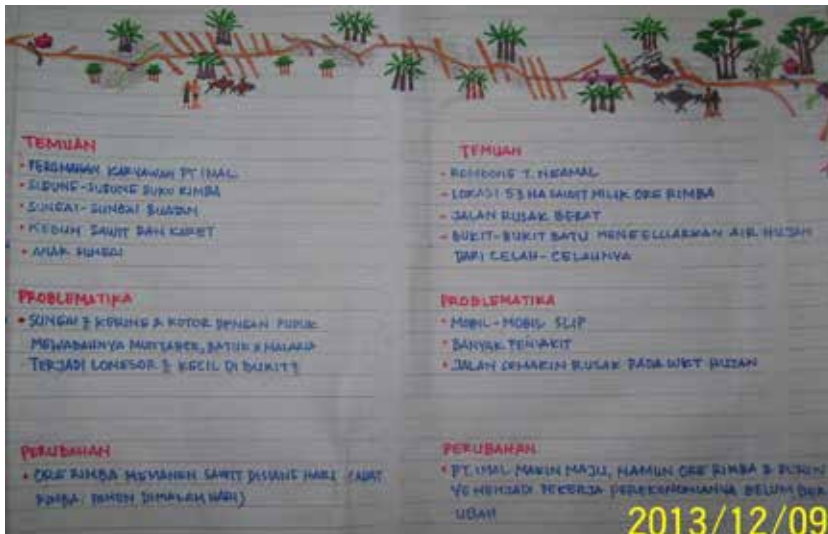 TEMUAN
• PERUMAHAN KARYAWAN PT IMAL
• SUDUNG-SUDUNG SUKU RIMBA
• SUNGAI-SUNGAI BUATAN
• KEBUN SAWIT DAN KARET
• ANAK SUNGAI
PROBLEMATIKA
• SUNGAI 2 KERING & KOTOR DENGAN PUPUK
MEWABAHNYA MUNTABER, BATUK & MALARIA
TERJADI LONGSOR 2 KECIL DI BUKIT 2
PERUBAHAN
• ORG RIMBA MEMANEN SAWIT DISIANG HARI (ADAT
RIMBA: PANEN DIMALAM HARI)
TEMUAN
- ROMBONG T. NGAMAL
- LOKASI 53 HA SAWIT MILIK ORG RIMBA
- JALAN RUSAK BERAT
- BUKIT-BUKIT BATU MENGELUARKAN AIR HUJAN
DARI CELAH-CELAHNYA
PROBLEMATIKA
• MOBIL-MOBIL SLIP
• BANYAK PENYAKIT
• JALAN SEMAKIN RUSAK PADA WKT HUJAN
PERUBAHAN
• PT. IMAL MAKIN MAJU, NAMUN ORG RIMBA &
YG MENJADI PEKERJA PEREKONOMIANYA BELUM BER
UBAH
2013/12/09